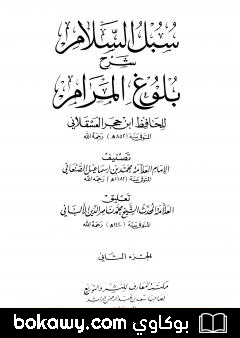 سبل السلام
شرح
بلوغ المرام
للحافظ ابن حجر العسقلاني
المتوفى سنة (٨٥٢هـ) رحمه الله
تصنيف
الإمام العلامة محمد بن إسماعيل الصنعاني
المتوفى سنة (١١٨٢هـ) رحمه الله
تعليق
العلامة المحدث الشيخ محمد ناصر الدين الألباني
المتوفى سنة (١٤٢٠هـ) رحمه الله
الجزء الثاني
مكتبة المعارف للنشر والتوزيع
لصاحبها سعد بن عبد الرحمن الراشد
بوكاوي | bokawy.com